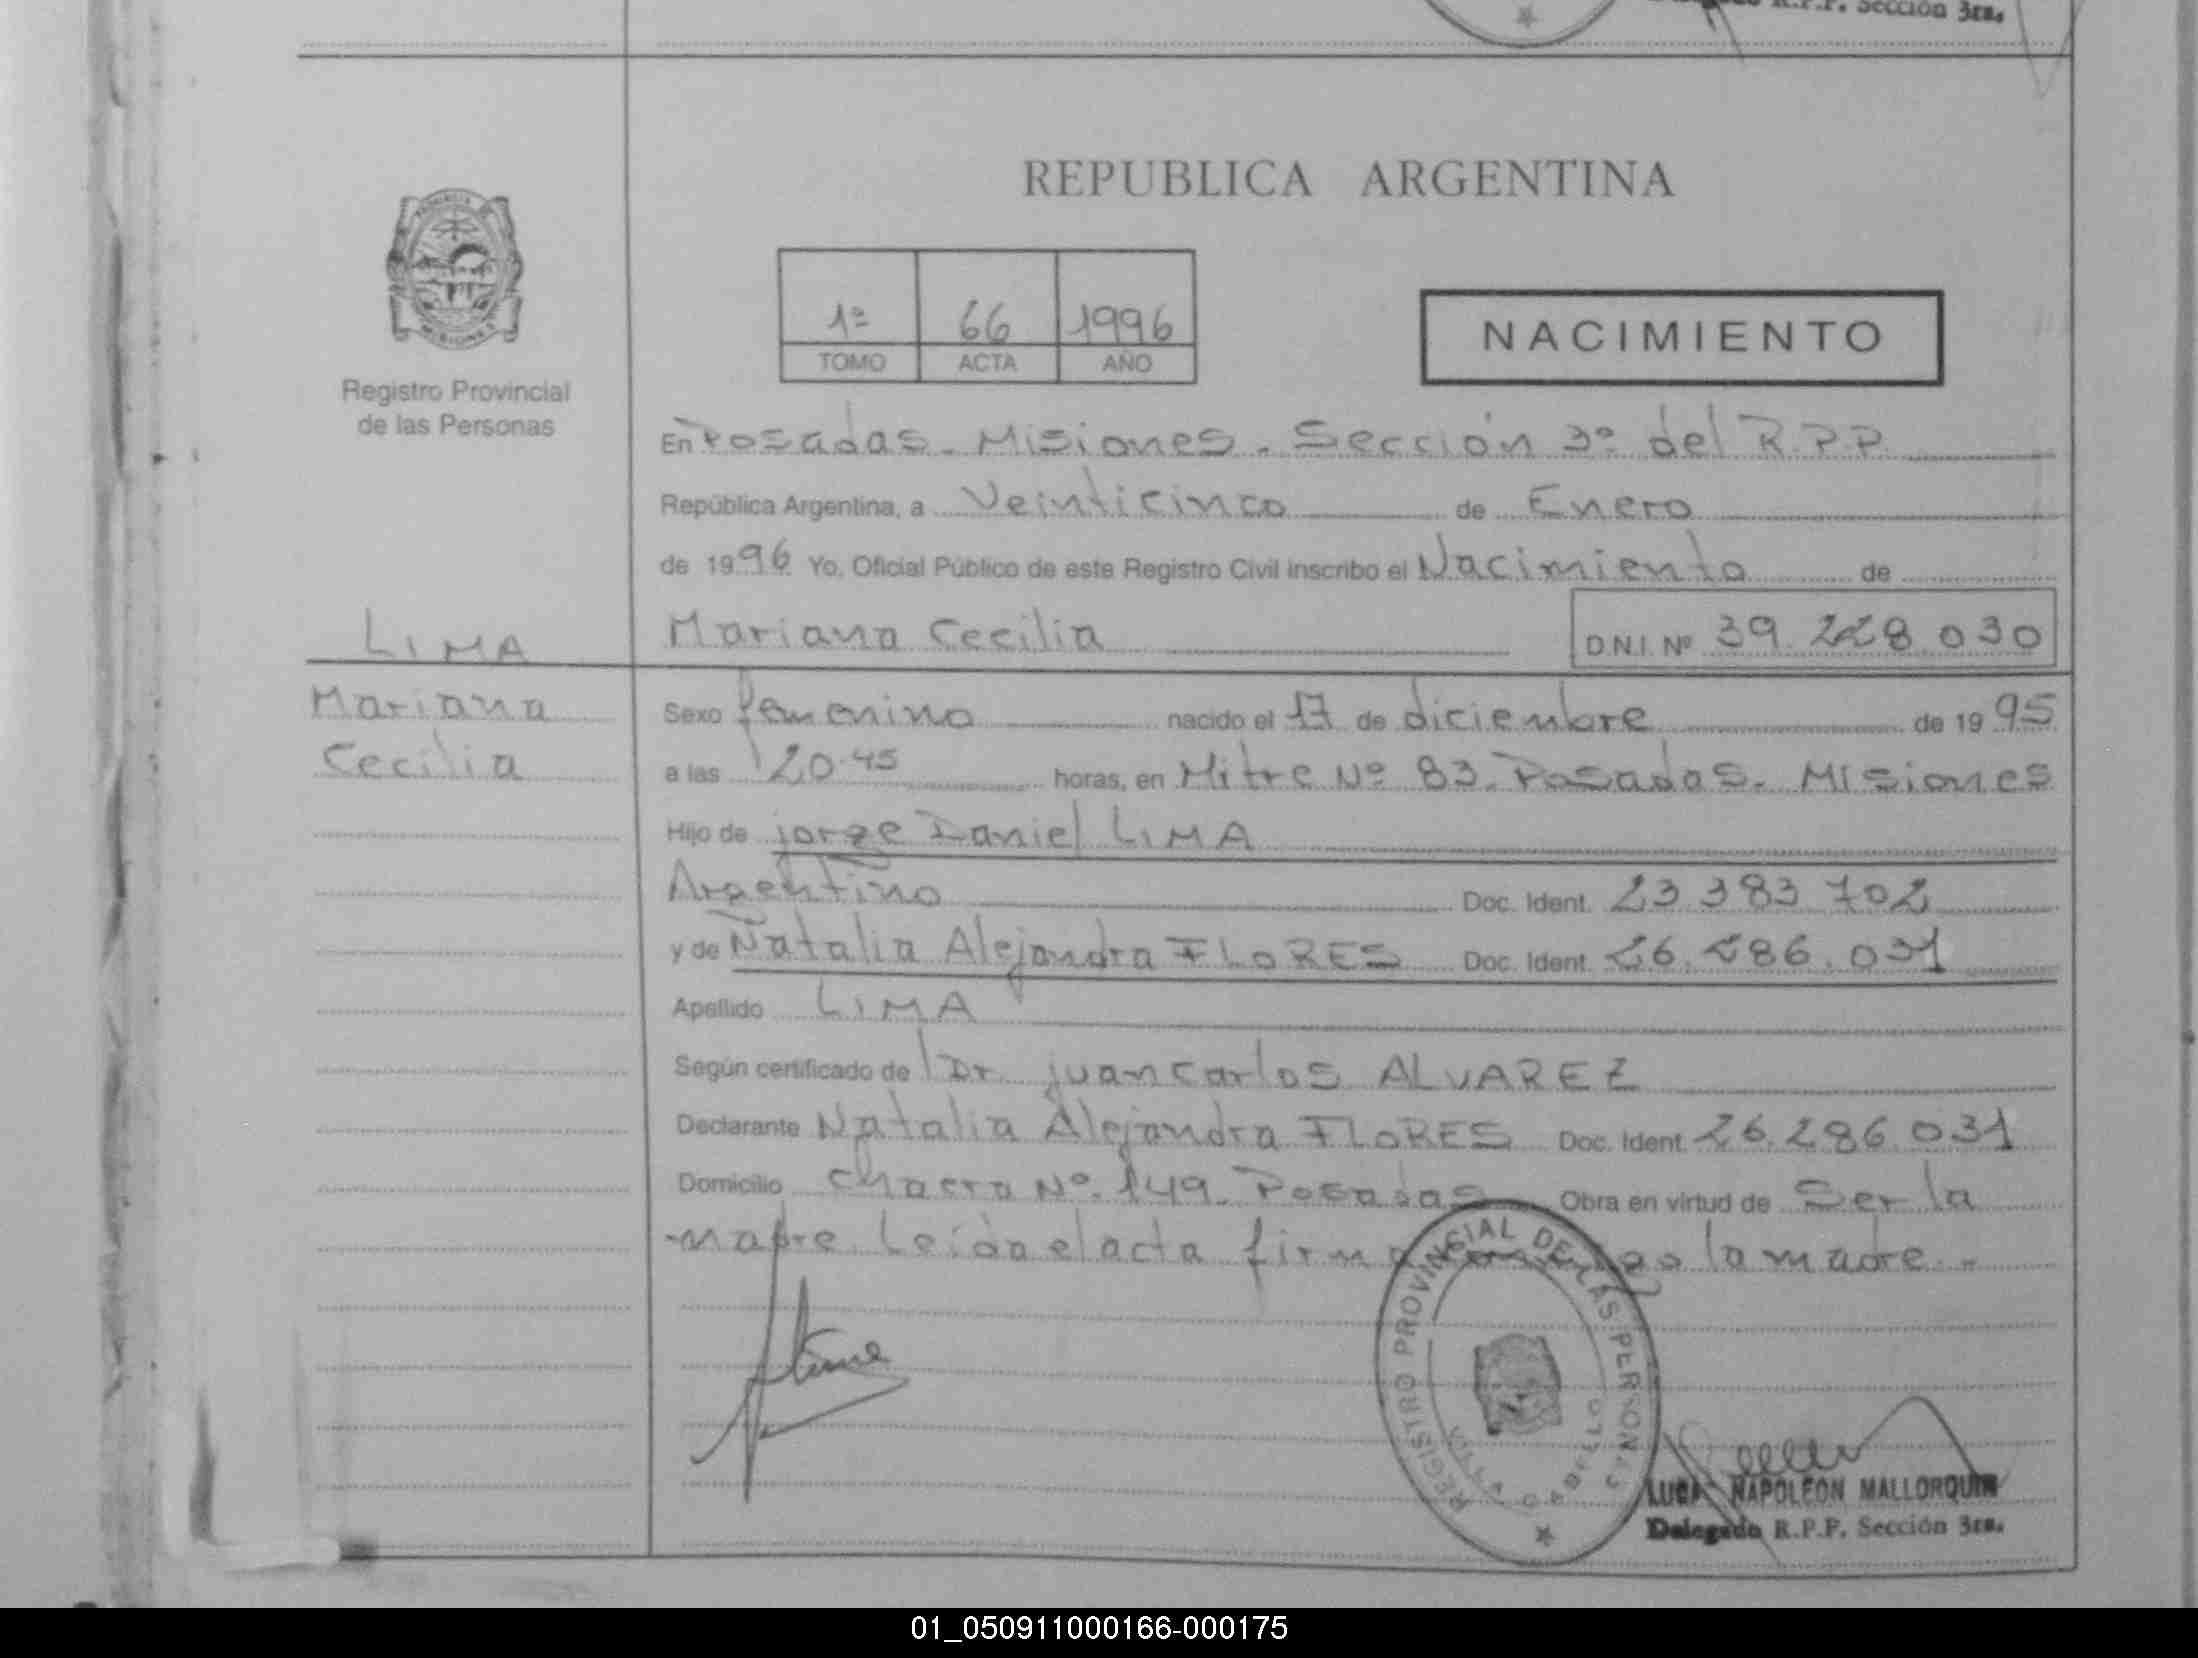 R.P.P. Sección 3ra.
REPUBLICA ARGENTINA
PROVINCIA DE
MISIONES
Registro Provincial
de las Personas
1º 66 1996
TOMO ACTA AÑO
NACIMIENTO
En Posadas - Misiones - Sección 3º del R.P.P.
República Argentina, a Veinticinco de Enero
de 1996 Yo, Oficial Público de este Registro Civil inscribo el Nacimiento de
Mariana Cecilia D.N.I. Nº 39.228.030
LIMA
Mariana
Cecilia
Sexo femenino nacido el 17 de diciembre de 1995
a las 20.45 horas, en Mitre Nº 83. Posadas. Misiones
Hijo de jorge Daniel LIMA
Argentino Doc. Ident. 23.383.702
y de Natalia Alejandra FLORES Doc. Ident. 26.286.031
Apellido LIMA
Según certificado de Dr. juan Carlos ALVAREZ
Declarante Natalia Alejandra FLORES Doc. Ident. 26.286.031
Domicilio Chacra Nº 149. Posadas Obra en virtud de Ser la
madre. Leida el acta firma la madre.-
REGISTRO PROVINCIAL DE LAS PERSONAS
VILLA CABELLO
NAPOLEON MALLORQUIN
Delegado R.P.P. Sección 3ra.
01_050911000166-000175